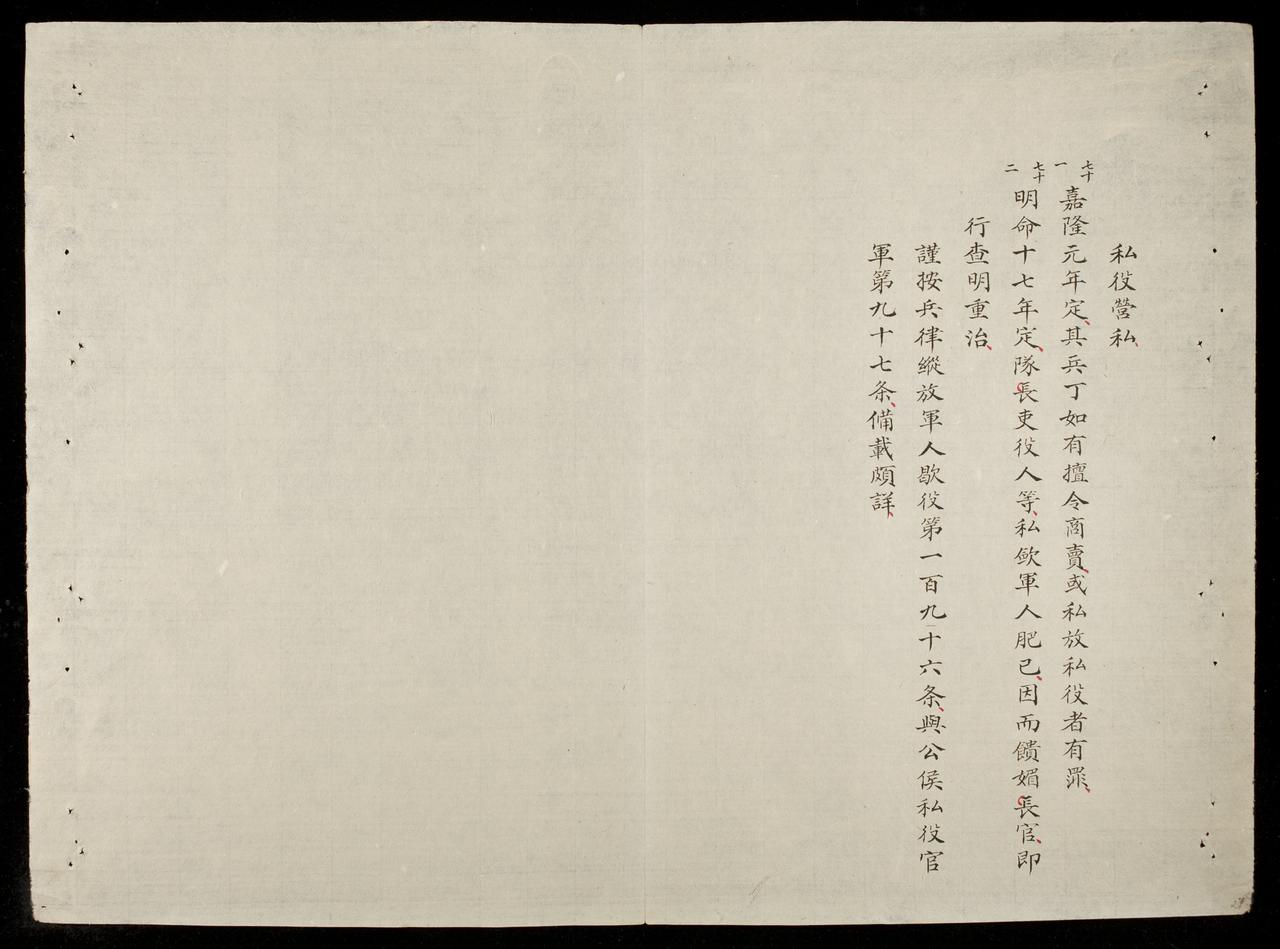 私役營私、
七十一 嘉隆元年定、其兵丁如有擅令商賣、或私放私役者有罪、
七十二 明命十七年定、隊長吏役人等、私歛軍人肥已、因而饋媚長官、即
行查明重治、
謹按兵律縱放軍人歇役第一百九十六条、與公侯私役官
軍第九十七条、備載頗詳、